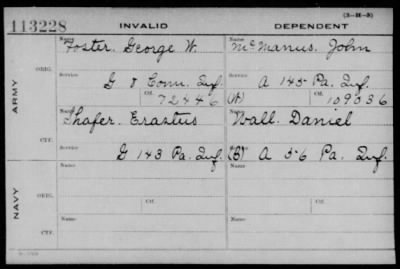 (3-H-3)
113228 INVALID DEPENDENT
Name Foster. George W. Name McManus. John
ARMY
ORIG. Service G 8 Conn. Inf. Service A 145 Pa. Inf.
Ctf. 72446 (A) Ctf. 109036
CTF. Name Shafer. Erastus Name Wall. Daniel
Service G 143 Pa. Inf. (B) A 56 Pa. Inf.
NAVY
ORIG. Name Ctf. Name Ctf.
CTF. Name Name